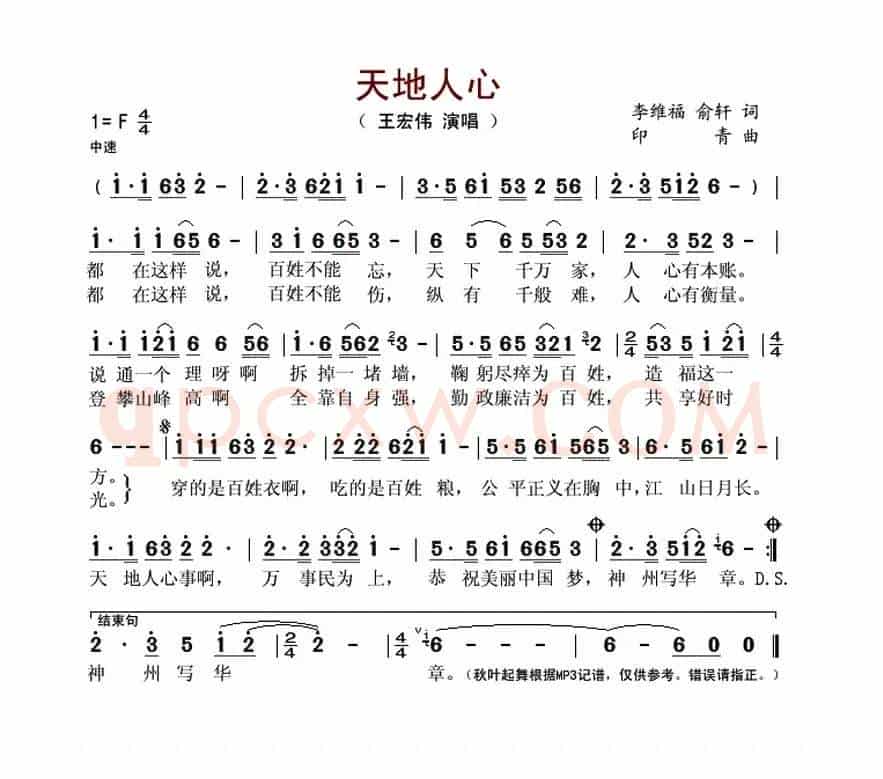 天地人心
1= F 4/4
（ 王宏伟 演唱 ）
李维福 俞轩 词
中速
印 青 曲
( i·i 63 2 - | 2·3 62i i - | 3·5 6i 53 2 56 | 2·3 5i2 6 - ) |
i· i i65 6 - | 3i 6 65 3 - | 6 5 6 5 53 2 | 2· 3 52 3 - |
都 在这样 说， 百姓不能 忘， 天 下 千万 家， 人 心有本账。
都 在这样 说， 百姓不能 伤， 纵 有 千般 难， 人 心有衡量。
i·i i2i 6 6 56 | i·6 562 3 - | 5·5 65 32i 2 | 2/4 53 5 i 2i | 4/4
说 通一个 理 呀 啊 拆 掉一 堵 墙， 鞠 躬尽瘁为 百 姓， 造 福这一
登 攀山峰 高 啊 全 靠自 身 强， 勤 政廉洁为 百 姓， 共 享好时
6 - - - | i ii 63 2 2· | 2 22 62i i - | 5·5 6i 565 3 | 6· 5 6i 2 - |
方。
光。
穿的是百姓衣啊， 吃的是百姓 粮， 公 平正义在胸 中，江 山日月长。
i· i 63 2 2 · | 2· 2 332 i - | 5· 5 6i 665 3 | 2· 3 5i2 6 - :||
天 地人心事啊， 万 事民为 上， 恭 祝美丽中国 梦， 神 州写华 章。D.S.
结束句
2· 3 5 i 2 | 2/4 2 - | 4/4 6 - - - | 6 - - - | 6 6 0 0 ||
神 州 写 华 章。（秋叶起舞根据MP3记谱，仅供参考。错误请指正。）
qpcxw.COM